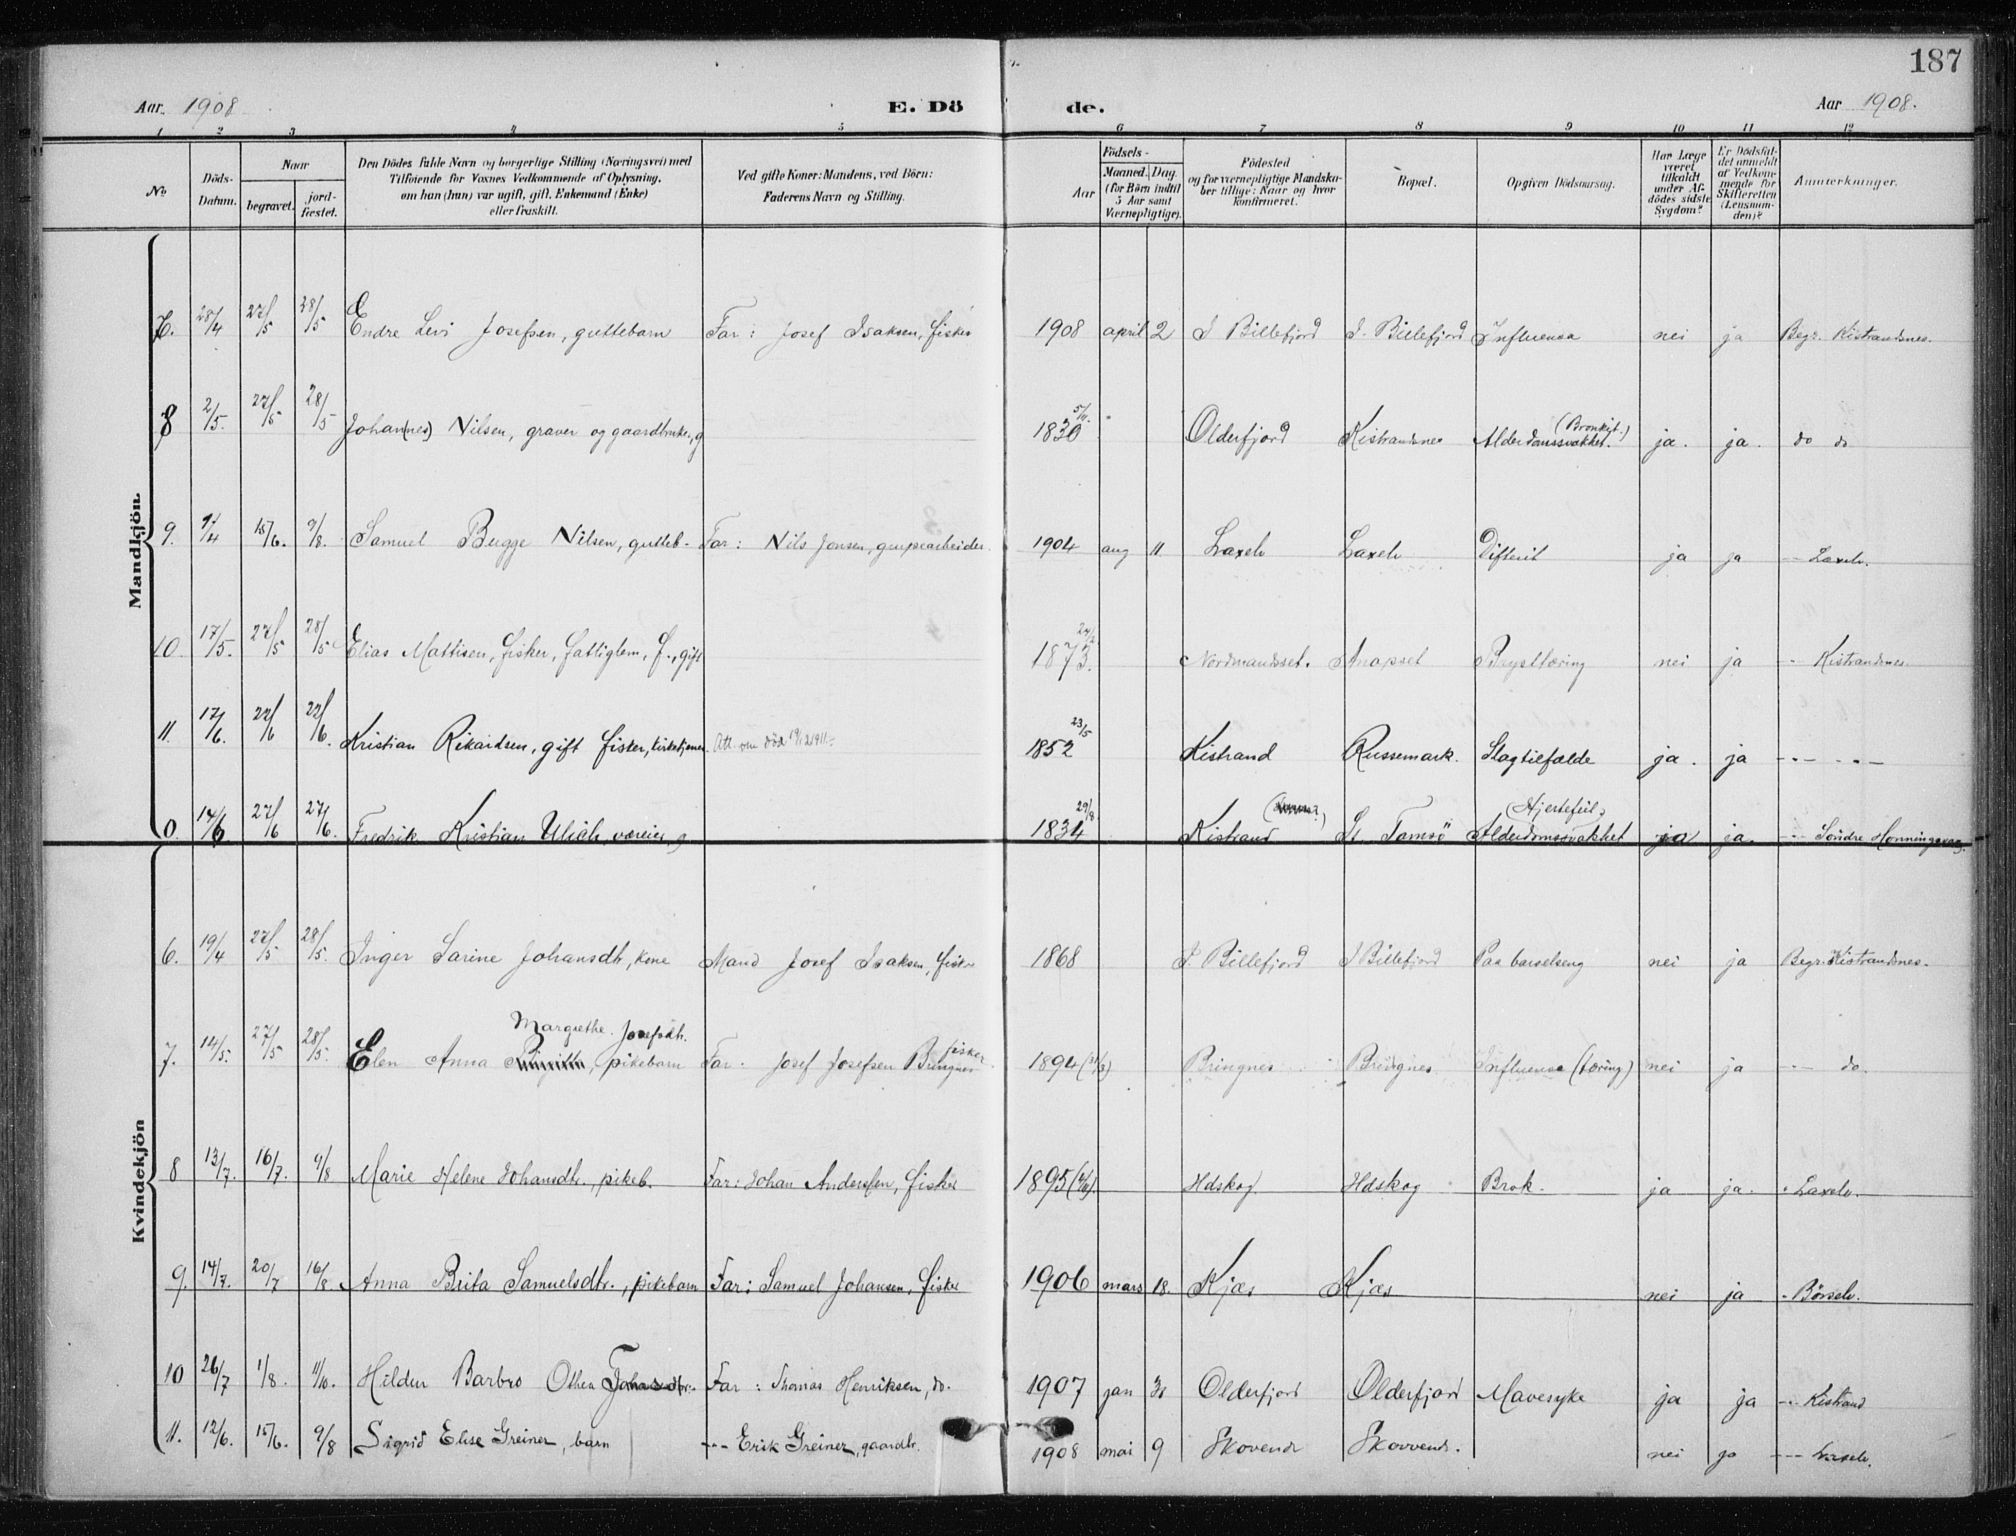 187
Aar. 1908. E. Dö de. Aar 1908.
1 2 3 4 5 6 7 8 9 10 11 12
No
Döds-Datum.
Naar
begravet.
jord-fæstet.
Den Dödes fulde Navn og borgerlige Stilling (Næringsvei) med
Tilföiende for Voxnes Vedkommende af Oplysning,
om han (hun) var ugift, gift, Enkemand (Enke)
eller fraskilt.
Ved gifte Koner: Mandens, ved Börn:
Faderens Navn og Stilling.
Födsels-
Aar
Maaned. Dag.
(for Börn indtil
5 Aar samt
Værnepligtige).
Födested
og for værnepligtige Mandska-
ber tillige: Naar og hvor
konfirmeret.
Bopæl.
Opgiven Dödsaarsag.
Har Læge
været
tilkaldt
under Af-
dödes sidste
Sygdom?
Er Dödsfal-
det anmeldt
af Vedkom-
mende for
Skifteretten
(Lensman-
den)?
Anmærkninger.
Mandkjön.
7. 28/4 27/5 28/5 Endre Levi Josefsen, guttebarn Far: Josef Isaksen, fisker 1908 april 2 I Billefjord I. Billefjord Influensa nei ja Begr. Kistrandsnes.
8 2/5. 27/5 28/5 Johan(nes) Nilsen, graver og gaardbruker, g 1830 5/11. Olderfjord Kistrandsnes Alderdomssvakhet. (Bronkit.) ja. ja. do do
9. /4 15/6. 9/8. Samuel Bugge Nilsen, gutteb- Far: Nils Jonsen, grupearbeider. 1904 aug 11 Laxelv Laxelv Difterit ja ja -"- Laxelv.
10. 17/5. 27/5 28/5 Elias Mattisen, fisker, fattiglem, f., gift 1873. 24/2 Nordmandsset. Brysttæring nei ja " Kistrandsnes.
11. 17/6. 22/6 22/6. Kristian Rikardsen, gift fisker, kirketjener. Att. om död 19/12 1911. 1852 23/5 Kistrand Russemark. Slagtilfælde ja. ja -"- -"-
0. 14/6 27/6 27/6. Fredrik Kristian Ulich, væreier, g 1834 29/8 Kistrand St. Tamsö Alderdomssvakhet (Hjertefeil) ja ja. -"- Söndre Honningsvaag.
Kvindekjön
6. 19/4 27/5 28/5. Inger Sarine Johansdt, kone Mand Josef Isaksen, fisker 1868 I. Billefjord I Billefjord Paa barselseng nei ja Begr. Kistrandsnes.
7. 14/5. 27/5 28/5. Elen Anna Margrethe Josefsdtr., pikebarn Far. Josef Josefsen Bringnes fisker 1894 (31/3) Bringnes Bringnes Influensa (tæring) nei ja -"- do.
8 13/7. 16/7. 9/8 Marie Helene Johansdtr., pikeb. Far: Johan Anderssen, fisker 1895 Hdskog Hdskog Brok. ja ja. " Laxelv.
9. 14/7. 20/7 16/8 Anna Brita Samuelsdtr., pikebarn Far: Samuel Johansen, fisker 1906 mars 18. Kjæs Kjæs nei ja " Börselv.
10 26/7 1/8. 11/10. Hildur Barbro Far: Thomas Henriksen, do. 1907 jan 30 Olderfjord Olderfjord Mavesyke ja ja -"- Kistrand
11. 12/6. 15/6. 9/8 Sigrid Elise Greiner, barn -"- Erik Greiner, gaardbr. 1908 mai 9 Skovends Skovvends. nei ja -"- Laxelv.